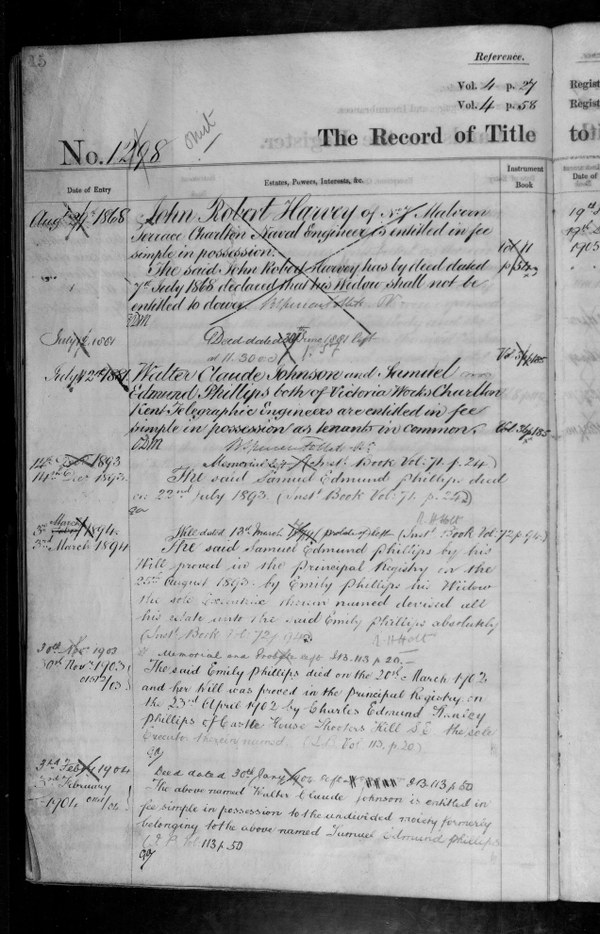 15
Reference.
Vol. 4 p. 27
Vol. 4 p. 58
omit
No. 1298
The Record of Title
Instrument
Book
Date of Entry
Estates, Powers, Interests, &c.
1868
John Robert Harvey of No 7 Malvern
Terrace Charlton Naval Engineer is entitled in fee
simple in possession.
Vol 11
The said John Robert Harvey has by deed dated
7th July 1868 declared that his Widow shall not be
entitled to dower.
Deed dated June 1881
at 11.30
July 1881
Walter Claude Johnson and Samuel
Edmund Phillips both of Victoria Works Charlton
Kent Telegraphic Engineers are entitled in fee
simple in possession as tenants in common.
14th 1893
Memorial Inst. Book Vol: 71. p. 24)
14th Dec 1893.
The said Samuel Edmund Phillips died
on 22nd July 1893. (Inst. Book Vol: 71. p. 24)
R H Holt
March
3rd 1894.
Will dated 13th March probate left (Inst. Book Vol: 72 p. 94.)
3rd March 1894
The said Samuel Edmund Phillips by his
Will proved in the Principal Registry on the
25th August 1893. by Emily Phillips his Widow
the sole Executrix therein named devised all
his estate unto the said Emily Phillips absolutely
(Inst. Book Vol. 72 p. 94)
R H Holt
30th Nov 1903
Memorial and Probate left I.B. 113 p. 20
30th Nov 1903
The said Emily Phillips died on the 20th March 1902
and her Will was proved in the Principal Registry on
the 23rd April 1902 by Charles Edmund Stanley
Phillips of Castle House Shooters Hill S.E the sole
Executor therein named. (I.B. Vol 113. p. 20)
3rd Feby 1904
Deed dated 30th Jany 1904 left I.B. 113 p. 50
3rd February
1904
The above named Walter Claude Johnson is entitled in
fee simple in possession to the undivided moiety formerly
belonging to the above named Samuel Edmund Phillips
113 p. 50